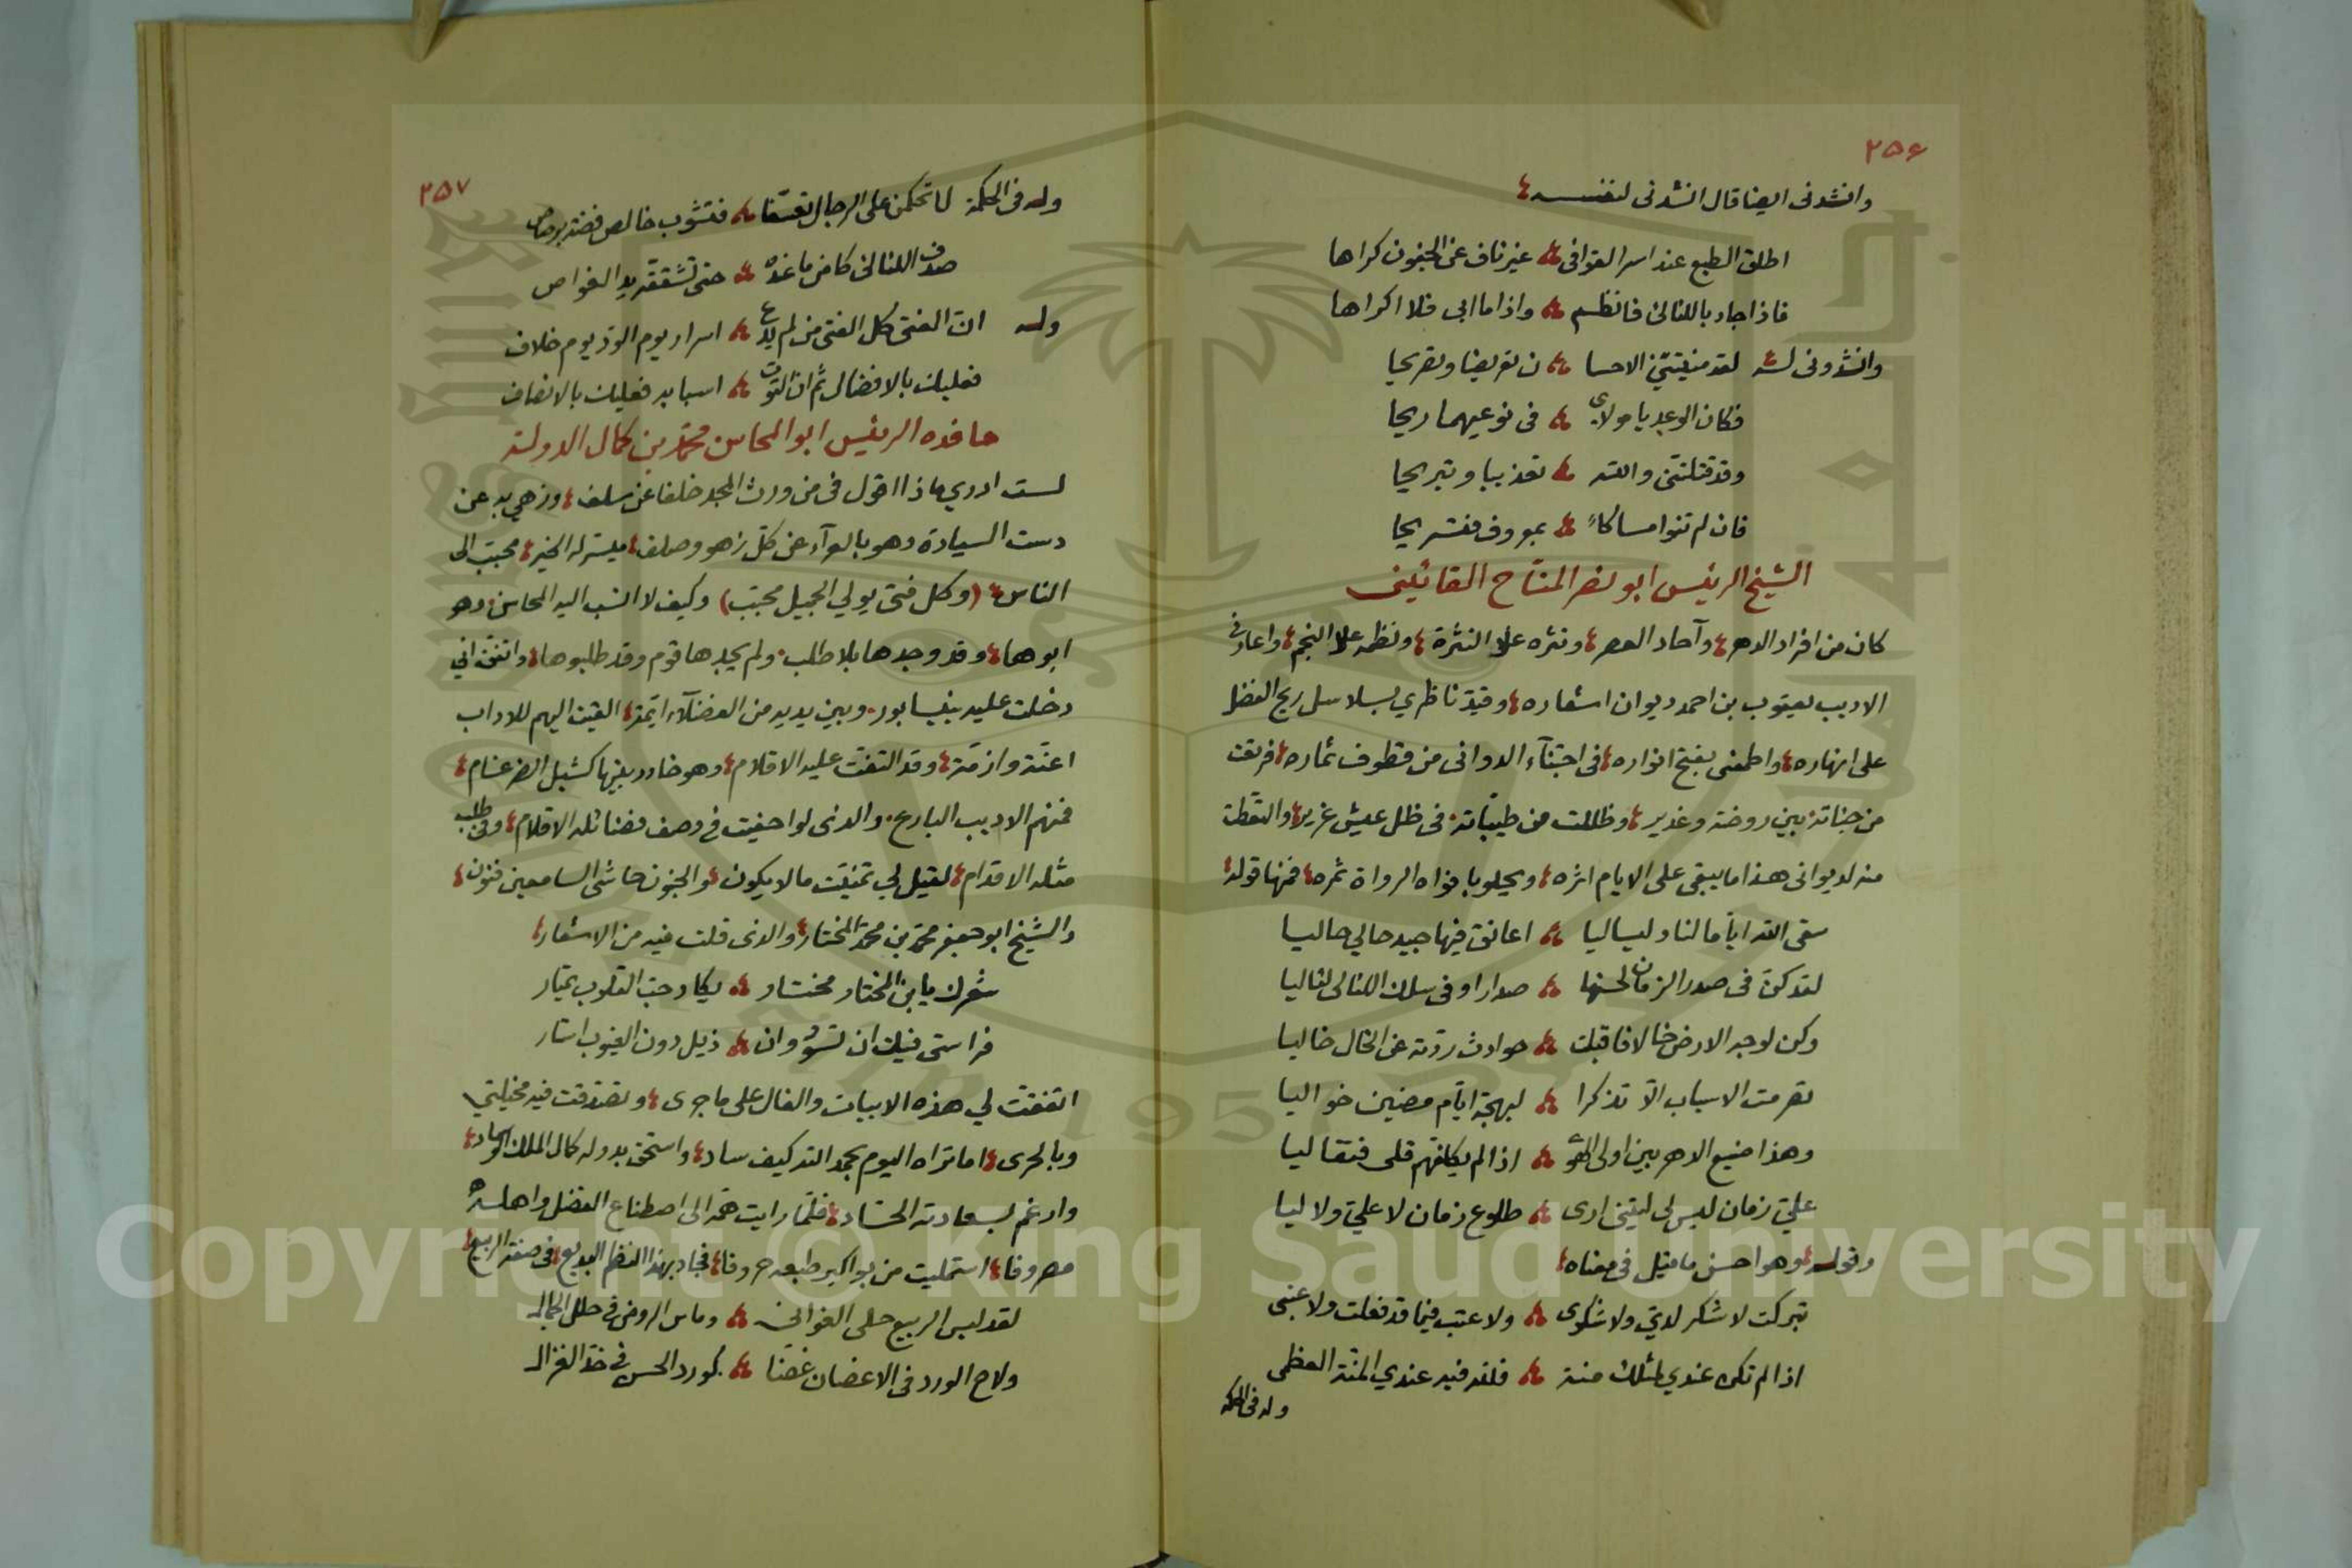 ٢٥٦
وانشدنى ايضا قال انشدنى لنفسه
اطلق الطبع عند اسر القوافى غير ناف عن الجفون كراها
فاذا جاد باللئالئ فانظم واذا ما ابى فلا اكراها
وانشدونى له لقد منيتنى الاحسا ن تعريضا وتصريحا
فكان الوعد يا مولاى فى نوعيهما ريحا
وقد قتلتنى والله تعذيبا وتبريحا
فان لم تنو امساكاً بمعروف فتسريحا
الشيخ الرئيس ابو نصر المنّاح القائينى
كان من افراد الدهر وآحاد العصر ونثره علا النثرة ونظمه علا النجم واعارنى
الاديب يعقوب بن احمد ديوان اشعاره وقيد ناظري بسلاسل ريح الفضل
على انهاره واطمعنى بفتح انواره فى اجتنآء الدوانى من قطوف ثماره فرتعت
من جناته بين روضة وغدير وظللت من طيباته فى ظل عيش غرير والتقطت
منه لديوانى هذا ما يبقى على الايام اثره ويحلو بافواه الرواة ثمره فمنها قوله
سقى الله اياما لنا ولياليا اعانق فيها جيد حالي حاليا
لقد كنّ فى صدر الزمان لحسنها صدارا وفى سلك اللئالى لئاليا
وكن لوجه الارض خالا فاقبلت حوادث ردّته عن الخال خاليا
تصرمت الاسباب الّا تذكرا لبهجة ايّام مضين خواليا
وهذا صنيع الدهر بين اولى الهوى اذا لم يكافهم قلى فتقاليا
عليّ زمان ليس لى ليتنى ارى طلوع زمان لا عليّ ولا ليا
وقوله وهو احسن ما قيل فى معناه
تبركت لا شكر لديّ ولا شكوى ولا عتب فيما قد فعلت ولا عتبى
اذا لم تكن عندي لمثلك منة فلله فيه عندي المنّة العظمى
وله فى الحكمة
٢٥٧
وله فى الحكمة لا تحكمن على الرجال تعسّفا فتشوب خالص فضة برصاص
صدف اللئالئ كامن ما عنده حتى تشققه يد الغواص
وله انّ الفتى كل الفتى من لم يدع اسرار يوم الودّ يوم خلاف
فعليك بالافضال ثم ان التوت اسبابه فعليك بالانصاف
حافده الرئيس ابو المحاسن محمّد بن كمال الدولة
لست ادري ماذا اقول فى من ورث المجد خلفا عن سلف وزهي به عن
دست السيادة وهو بالعرآء عن كلّ زهو وصلف ميسّر له الخير محبّب الى
الناس (وكل فتى يولي الجميل محبّب) وكيف لا انسب اليه المحاسن وهو
ابوها وقد وجدها بلا طلب ولم يجدها قوم وقد طلبوها واتفق اني
دخلت عليه بنيسابور وبين يديه من الفضلآء ائمّة القيت اليهم للاداب
اعنّة وازمّة وقد التفت عليه الاقلام وهو خادر بينها كشبل الضرغام
فمنهم الاديب البارع والذى لو احفيت فى وصف فضائله الاقلام وفى طلب
مثله الاقدام لقيل لي تمنيت ما لا يكون والجنون حاشى السامعين فنون
والشيخ ابو جعفر محمّد بن محمّد المختار والذى قلت فيه من الاشعار
شعرك يا بن المختار مختار يكاد حبّ القلوب يمتار
فراستى فيك ان تسود وان ذيل دون الغيوب استار
اتفقت لي هذه الابيات والفال على ما جرى وتصدقت فيه مخيلتي
وبالحرى اما تراه اليوم بحمد الله كيف ساد واستحق بدوله كمال الملك
وارغم بسعادته الحسّاد فلمّا رايت همّه الى اصطناع الفضل واهله
مصروفا استمليت من بواكير طبعه حروفا فجاد بهذا النظم البديع فى صفة الربيع
لقد لبس الربيع حلى الغوانى وماس الروض فى حلل الجمال
ولاح الورد فى الاغصان غضّا كورد الحسن فى خدّ الغزال
Copyright © King Saud University
1957